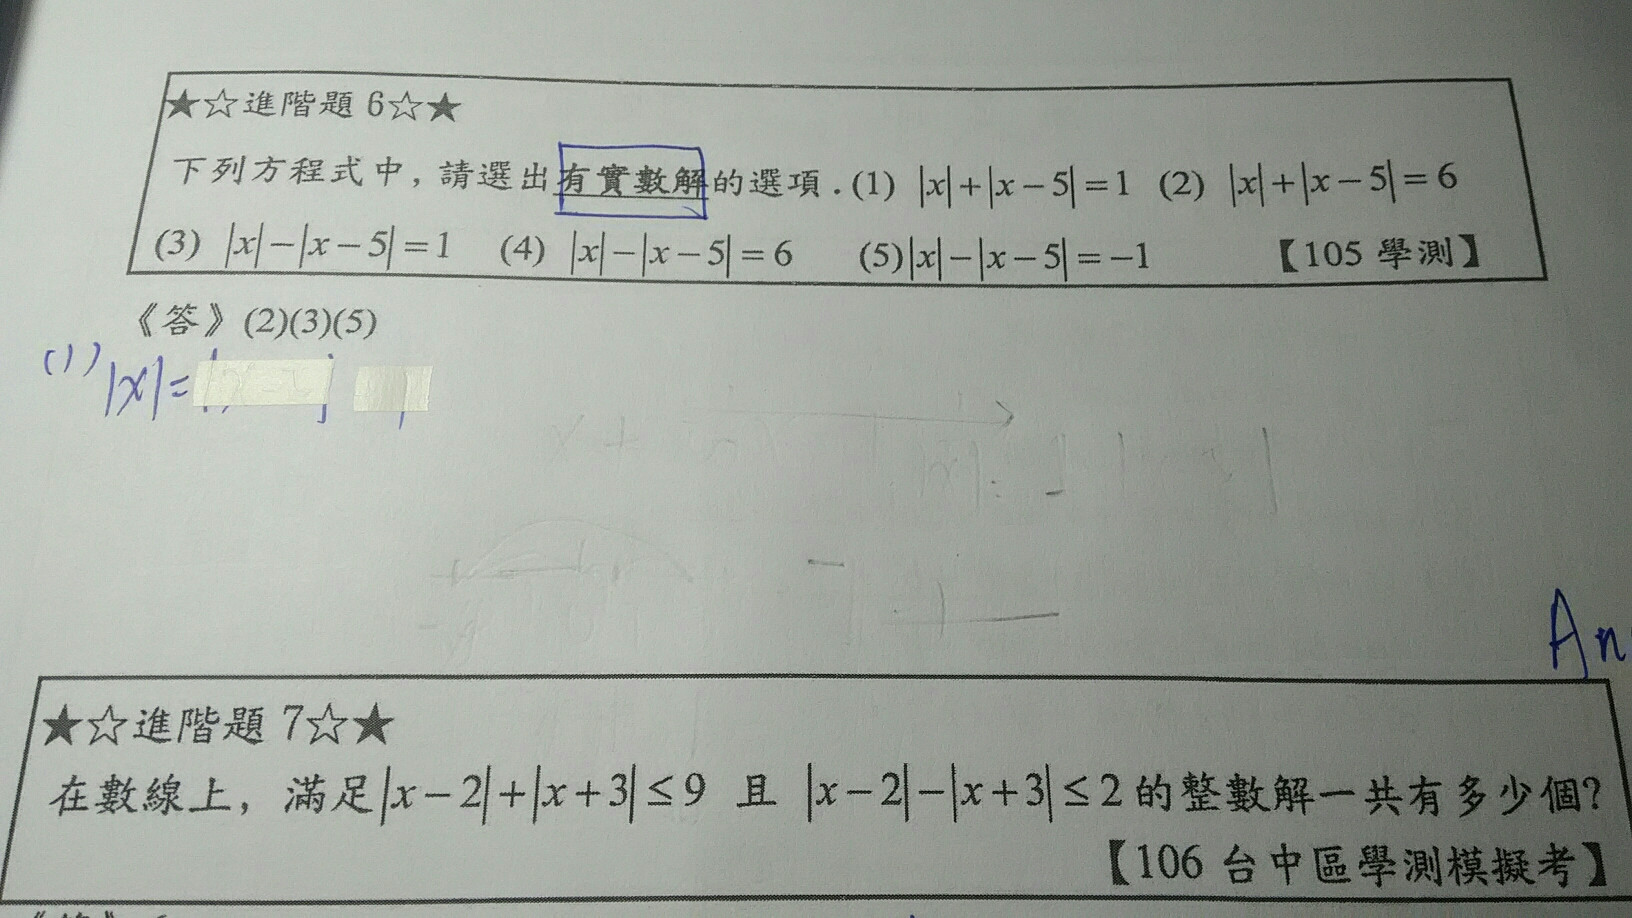 ★☆進階題 6☆★
下列方程式中，請選出有實數解的選項．(1) |x|+|x−5|=1 (2) |x|+|x−5|=6
(3) |x|−|x−5|=1 (4) |x|−|x−5|=6 (5)|x|−|x−5|=−1 【105 學測】
《答》(2)(3)(5)
(1) |x|=
An
★☆進階題 7☆★
在數線上，滿足|x−2|+|x+3|≤9 且 |x−2|−|x+3|≤2的整數解一共有多少個?
【106 台中區學測模擬考】